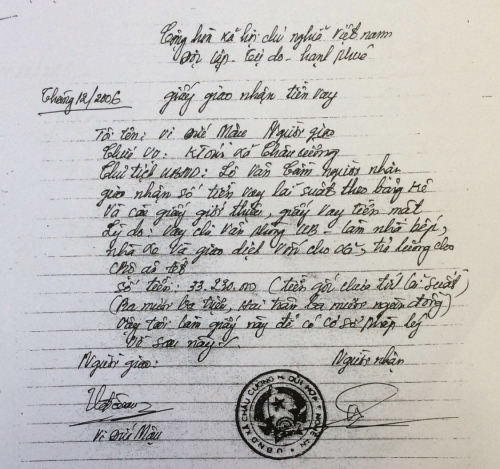 Cộng hòa xã hội chủ nghĩa Việt nam
Độc lập - tự do - hạnh phúc
Tháng 12/2006 giấy giao nhận tiền vay
Tôi tên: Vi Đức Mậu Người giao
Chức vụ: KToán xã Châu Cường
Chủ tịch UBND: Lô Văn Cầm người nhận
giao nhận số tiền vay lãi suất theo bảng kê
và các giấy giới thiệu, giấy vay tiền mặt
Lý do: Vay chi văn phòng UB làm nhà bếp,
nhà xe và giao dịch vốn cho xã, trả lương cho
số tiền: 33.230.000 (tiền gốc chưa tính lãi suất)
(Ba mươi ba triệu, hai trăm ba mươi ngàn đồng)
Vậy tôi làm giấy này để có cơ sở pháp lý
về sau này.
Người giao: Người nhận
Vi Đức Mậu
UBND XÃ CHÂU CƯỜNG H. QUỲ HỢP NGHỆ AN